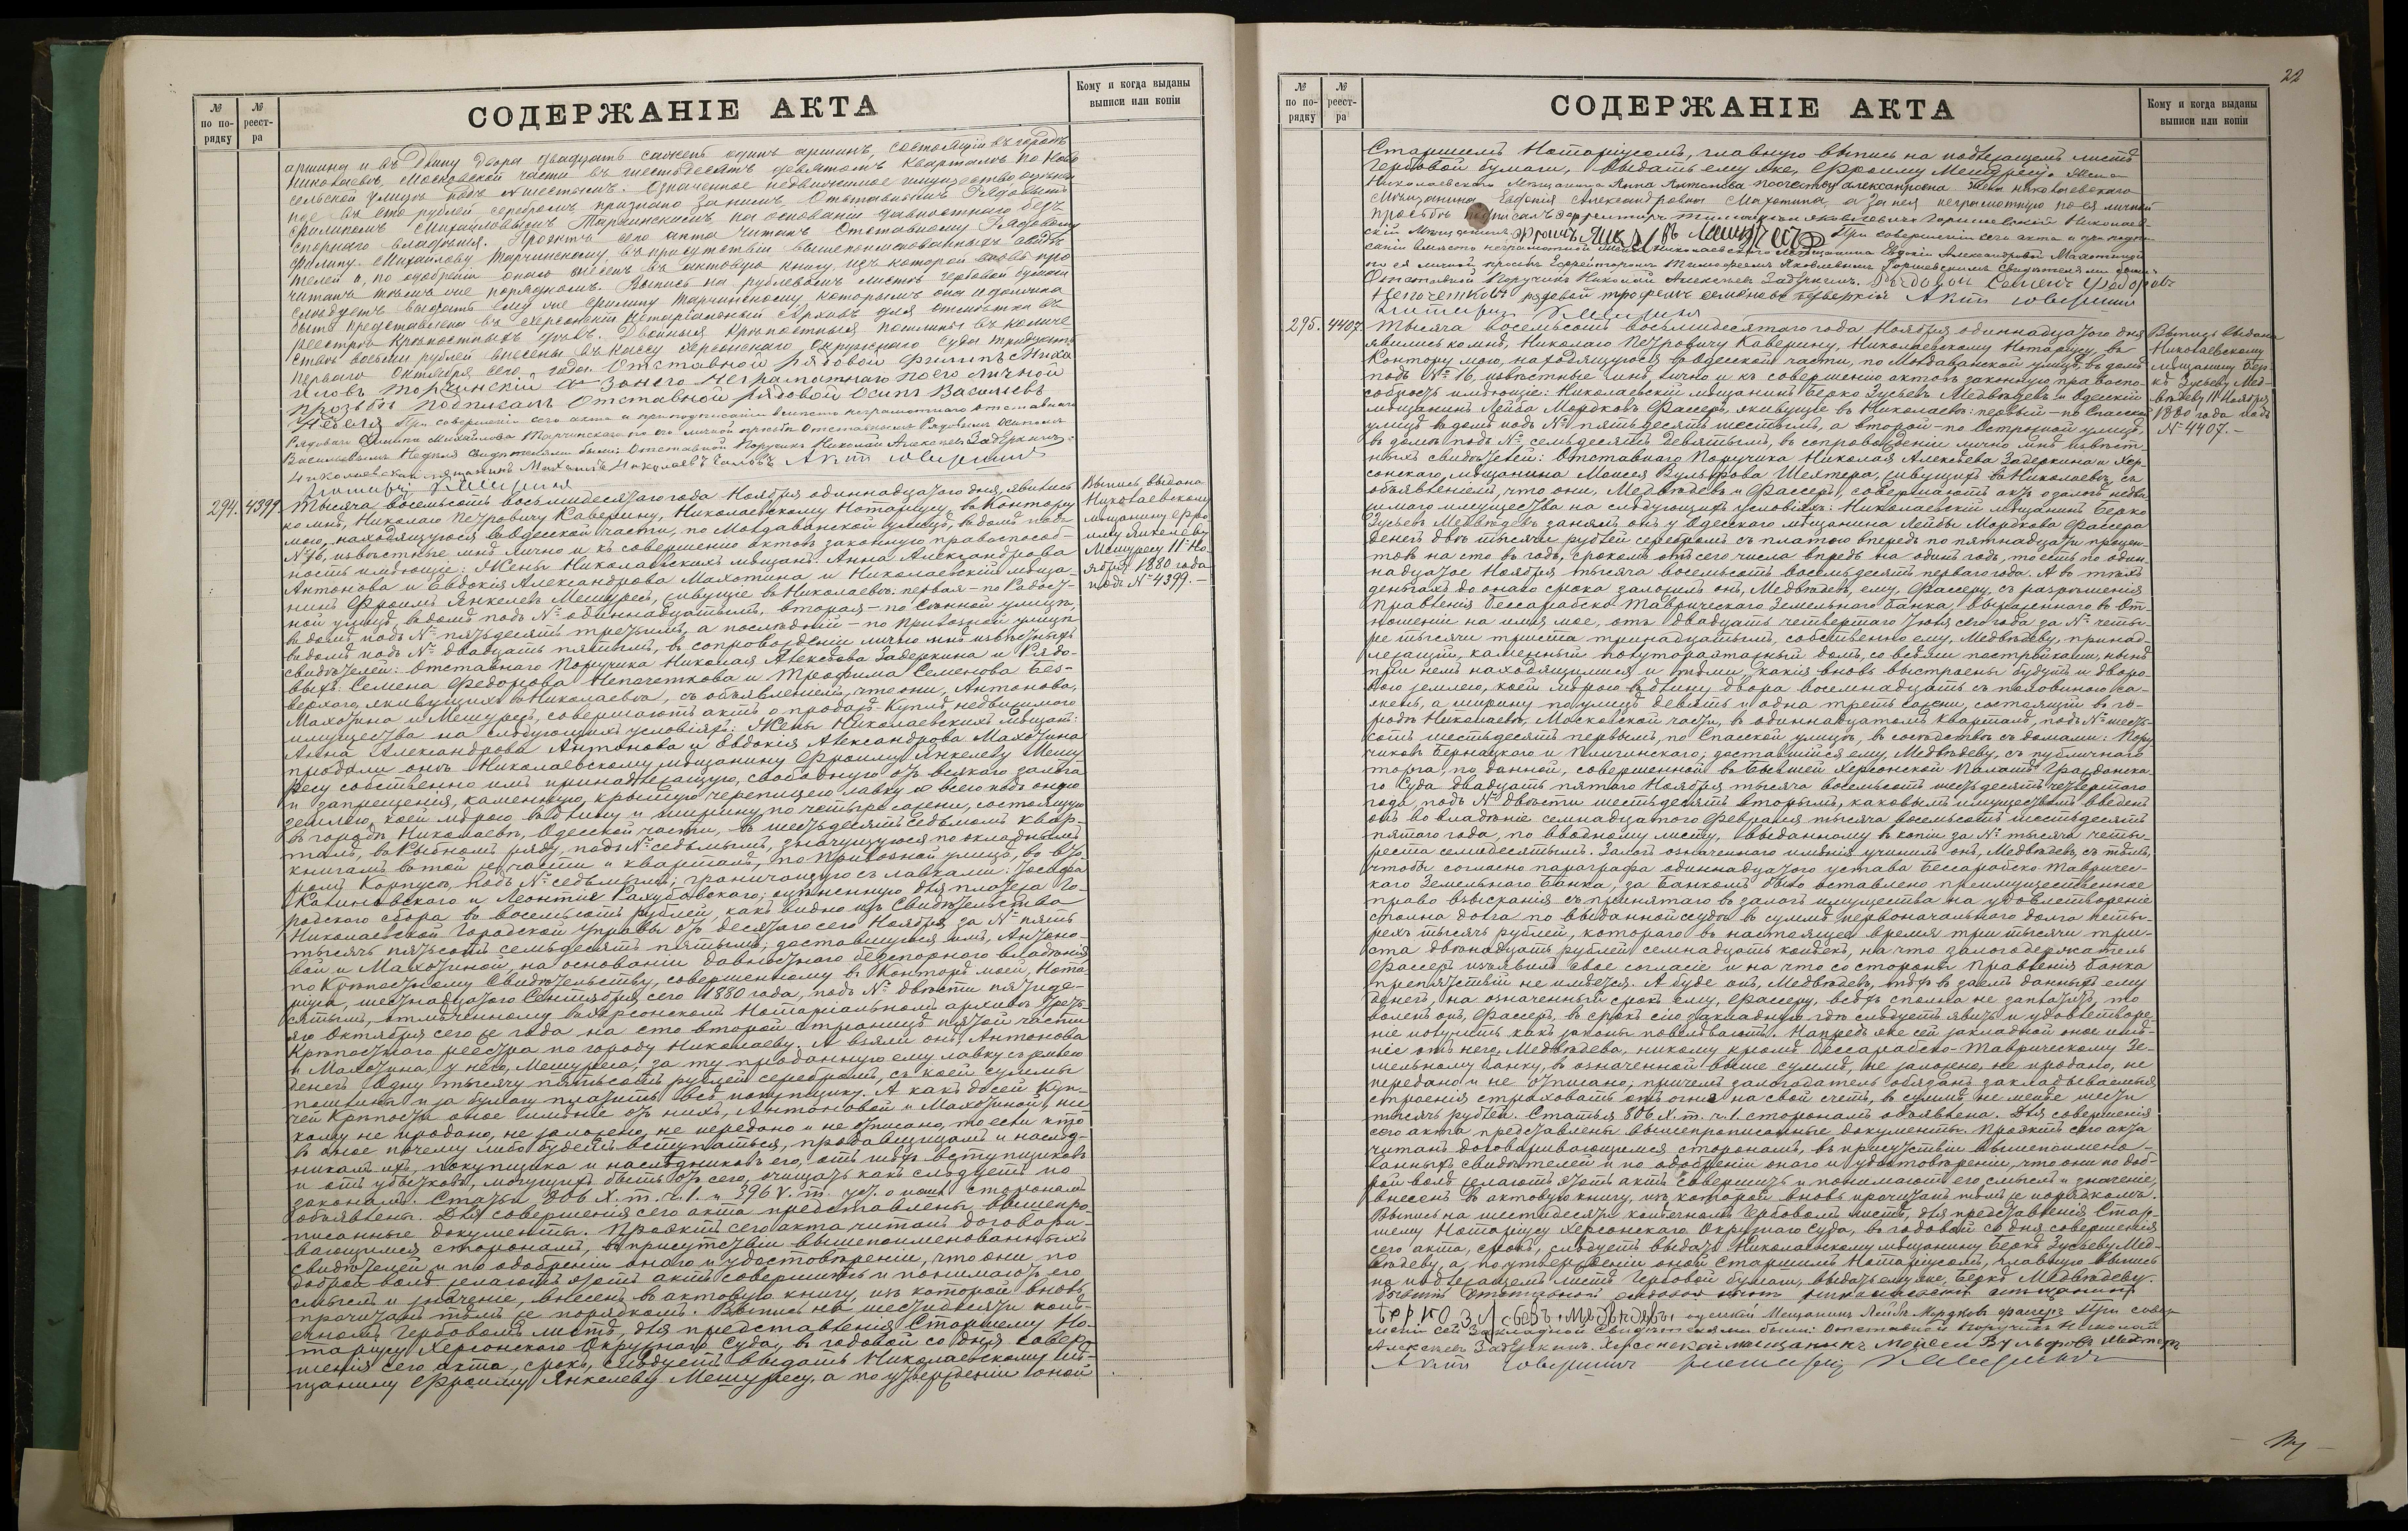 № по порядку
№ реестра
СОДЕРЖАНІЕ АКТА
Кому и когда выданы выписи или копіи
аршина и въ длину двора двадцать сажень одинъ аршинъ, состоящій въ городѣ
Николаевѣ, Московской части въ шестьдесятъ девятомъ кварталѣ по Ново
сельской улицѣ подъ № шестымъ. Означенное недвижимое имущество
въ сто рублей серебромъ признано за нимъ, Отставнымъ Рядовымъ
Филиппомъ Михайловымъ Тарчинскимъ на основаніи давностнаго без
спорнаго владѣнія. Проэктъ сего акта читанъ Отставному Рядовому
Филипу Михайлову Тарчинскому, въ присутствіи вышепоименованныхъ свидѣ
телей и, по одобреніи онаго внесенъ въ актовую книгу, изъ которой вновь про
читанъ тѣмъ же порядкомъ. Выпись на рублевомъ листѣ гербовой бумаги
слѣдуетъ выдать ему же Филипу Тарчинскому, которымъ она и должна
быть представлена въ Херсонскій Нотаріальный Архивъ для отмѣтки въ
реестрѣ крѣпостныхъ дѣлъ. Двойныя крѣпостныя пошлины въ количе
ствѣ восьми рублей внесены въ кассу Херсонскаго Окружнаго Суда тридцать
перваго Октября сего года. Отставной рядовой Филипъ Миха
йловъ Тарчинскій а занего неграмотнаго поего личной
прозьбѣ подписалъ Отставной рядовой Осипъ Васильевъ
Недѣля При совершеніи сего акта и приподписаніи вмѣсто неграмотнаго отставнаго
Рядоваго Филипа Михайлова Тарчинскаго по его личной просьбѣ Отставнымъ Рядовымъ Осипомъ
Васильевымъ Недѣля Свидѣтелями были: Отставной Поручикъ Николай Алексѣевъ Задеркинъ,
Николаевскій мѣщанинъ Михаилъ Николаевъ Актъ совершилъ
Нотаріусъ Каверинъ
294. 4399. Тысяча восемьсотъ восьмидесятаго года Ноября одиннадцатаго дня, явились
ко мнѣ, Николаю Петровичу Каверину, Николаевскому Нотаріусу, въ Контору
мою, находящуюся въ Одесской части, по Молдаванской улицѣ, въ домѣ подъ
№ 16, извѣстные мнѣ лично и къ совершенію актовъ законную правоспособ-
ность имѣющіе: Жены Николаевскихъ мѣщанъ: Анна Александрова
Антонова и Евдокія Александрова Махотина и Николаевскій мѣща-
нинъ Фроимъ Янкелевъ Мешуресъ, живущіе въ Николаевѣ: первая - по Рабосу-
ной улицѣ, въ домѣ подъ № одиннадцатымъ, вторая - по Сѣнной улицѣ,
въ домѣ подъ № пятьдесятъ третьимъ, а послѣдній - по Привозной улицѣ
въ домѣ подъ № двадцать пятымъ, въ сопровожденіи лично мнѣ извѣстныхъ
свидѣтелей: Отставнаго Поручика Николая Алексѣева Задеркина и Рядо-
выхъ: Семена Федорова Непочеткова и Трофима Семенова Без-
верхаго, живущихъ въ Николаевѣ, съ объявленіемъ, что они, Антонова,
Махотина и Мешуресъ, совершаютъ актъ о продажѣ-куплѣ недвижимаго
имущества на слѣдующихъ условіяхъ: Жены Николаевскихъ мѣщанъ:
Анна Александрова Антонова и Евдокія Александрова Махотина
продали онѣ Николаевскому мѣщанину Фроиму Янкелеву Мешу-
ресу собственно имъ принадлежащую, свободную отъ всякаго залога
и запрещенія, каменную, крытую черепицею лавку со всею подъ оною
землею, коей мѣрою въ длину и ширину по четыре сажени, состоящую
въ городѣ Николаевѣ, Одесской части, въ шестьдесятъ седьмомъ квар-
талѣ, въ Рыбномъ ряду, подъ № седьмымъ, значущуюся по окладнымъ
книгамъ въ той же части и кварталѣ, по Привозной улицѣ, во вто-
ромъ Корпусѣ, подъ № седьмымъ; граничащую съ лавками: Іосифа
Калиновскаго и Леонтія Рахубовскаго; оцѣненную для платежа Го-
родскаго сбора въ восемьсотъ рублей, какъ видно изъ Свидѣтельства
Николаевской Городской Управы отъ десятаго сего Ноября за № пять
тысячъ пятьсотъ семьдесятъ пятымъ; доставшуюся имъ, Антоно-
вой и Махотиной, на основаніи давностнаго безспорнаго владѣнія
по Крѣпостному Свидѣтельству, совершенному въ Конторѣ моей, Нота
ріуса, шестнадцатаго Сентября сего 1880 года, подъ № двѣсти пятиде-
сятымъ, отмѣченному въ Херсонскомъ Нотаріальномъ архивѣ треть
яго Октября сего же года на сто второй страницѣ пятой части
Крѣпостнаго реестра по городу Николаеву. А взяли онѣ, Антонова
и Махотина, у него, Мешуреса, за ту проданную ему лавку съ землею
денегъ Одну тысячу пятьсотъ рублей серебромъ, съ коей суммы
пошлины и за бумагу платитъ всѣ покупщикъ. А какъ до сей Куп-
чей Крѣпости оное имѣніе отъ нихъ, Антоновой и Махотиной, ни-
кому не продано, не заложено, не передано и не отписано, то если кто
въ оное почему либо будетъ вступаться, продавщицамъ и наслѣд-
никамъ ихъ, покупщика и наслѣдниковъ его, отъ тѣхъ вступщиковъ
и отъ убытковъ, могущихъ быть отъ сего, очищать какъ слѣдуетъ по
законамъ. Статьи 806 X. т. ч. 1. и 396 V. т. уст. о пошл. сторонамъ
объявлены. Для совершенія сего акта представлены вышепро-
писанные документы. Проэктъ сего акта читанъ договари-
вающимся сторонамъ, въ присутствіи вышепоименованныхъ
свидѣтелей и по одобреніи онаго и удостовѣреніи, что они по
доброй волѣ желаютъ этотъ актъ совершить и понимаютъ его
смыслъ и значеніе, внесенъ въ актовую книгу, изъ которой вновь
прочитанъ тѣмъ же порядкомъ. Выпись на шестидесяти копѣ-
ечномъ Гербовомъ листѣ, для представленія Старшему Но-
таріусу Херсонскаго Окружнаго Суда, въ годовой со дня совер-
шенія сего акта, срокъ, слѣдуетъ выдать Николаевскому мѣ-
щанину Фроиму Янкелеву Мешуресу, а по утвержденіи оной
Выпись выдана
Николаевскому
мѣщанину Фро-
иму Янкелеву
Мешуресу 11 Но-
ября 1880 года
подъ № 4399.-
22
№ по порядку
№ реестра
СОДЕРЖАНІЕ АКТА
Кому и когда выданы выписи или копіи
Старшимъ Нотаріусомъ, главную выпись на подлежащемъ листѣ
Гербовой бумаги, выдать ему же, Фроиму Мешуресу. Жена
Николаевскаго Мѣщанина Анна Антонова поотчеству александровна Жена николаевскаго
Мѣщанина Евдокія Александровна Махотина, а за нея неграмотную по ея личной
просьбѣ подписалъ Эфрейторъ Тимофей Яковлевъ Горшевскій Николаев-
скій Мѣщанинъ Фроимъ Янкелевъ Мешуресъ При совершеніи сего акта и при подпи-
саніи вмѣсто неграмотной Жены Николаевскаго Мѣщанина Евдокіи Александровой Махотиной
по ея личной просьбѣ Ефрейторомъ Тимофеемъ Яковлевымъ Горшевскимъ Свидѣтелями были:
Отставной Поручикъ Николай Алексѣевъ Задеркинъ. Рядовой Семенъ Федоровъ
Непочетковъ рядовой трофимъ семеновъ безверхій Актъ совершилъ
Нотаріусъ Каверинъ
295. 4407. Тысяча восемьсотъ восьмидесятаго года Ноября одиннадцатаго дня
явились ко мнѣ, Николаю Петровичу Каверину, Николаевскому Нотаріусу, въ
Контору мою, находящуюся въ Одесской части, по Молдаванской улицѣ, въ домѣ
подъ № 16, извѣстные мнѣ лично и къ совершенію актовъ законную правоспо-
собность имѣющіе: Николаевскій мѣщанинъ Берко Зусьевъ Медвѣдевъ и Одесскій
мѣщанинъ Лейба Мордковъ Фассеръ, живущіе въ Николаевѣ: первый - по Спасской
улицѣ въ домѣ подъ № пятьдесятъ шестымъ, а второй - по Острожной улицѣ,
въ домѣ подъ № семьдесятъ девятымъ, въ сопровожденіи лично мнѣ извѣст-
ныхъ свидѣтелей: Отставнаго Поручика Николая Алексѣева Задеркина и Хер-
сонскаго мѣщанина Моисея Вульфова Шехтера, живущихъ въ Николаевѣ, съ
объявленіемъ, что они, Медвѣдевъ и Фассеръ, совершаютъ актъ о залогѣ недви-
жимаго имущества на слѣдующихъ условіяхъ: Николаевскій мѣщанинъ Берко
Зусьевъ Медвѣдевъ занялъ онъ у Одесскаго мѣщанина Лейбы Мордкова Фассера
денегъ двѣ тысячи рублей серебромъ съ платою впередъ по пятнадцати процен-
товъ на сто въ годъ, срокомъ отъ сего числа впредь на одинъ годъ, то есть по один-
надцатое Ноября тысяча восемьсотъ восемьдесятъ перваго года. А въ тѣхъ
деньгахъ до онаго срока заложилъ онъ, Медвѣдевъ, ему, Фассеру, съ разрѣшенія
Правленія Бессарабско-Таврическаго Земельнаго Банка, выраженнаго въ от-
ношеніи на имя мое, отъ двадцать четвертаго Іюня сего года за № четы-
ре тысячи триста тринадцатымъ, собственно ему, Медвѣдеву, принад-
лежащій, каменный полутораэтажный домъ, со всѣми постройками, нынѣ
при немъ находящимися и тѣми, какія вновь выстроены будутъ и дворо-
вою землею, коей мѣрою въ длину двора восемнадцать съ половиною са-
жень, а ширину по улицѣ девять и одна треть сажени, состоящій въ го-
родѣ Николаевѣ, Московской части, въ одиннадцатомъ кварталѣ, подъ № шесть-
сотъ шестьдесятъ первымъ, по Спасской улицѣ, въ сосѣдствѣ съ домами: Пору
чиковъ Бернацкаго и Плигинскаго; доставшійся ему, Медвѣдеву, съ публичнаго
торга, по данной, совершенной въ бывшей Херсонской Палатѣ Гражданска
го Суда двадцать пятаго Ноября тысяча восемьсотъ шестьдесятъ четвертаго
года, подъ № двѣсти шестьдесятъ вторымъ, каковымъ имуществомъ введенъ
онъ во владѣніе семнадцатаго Февраля тысяча восемьсотъ шестьдесятъ
пятаго года, по вводному листу, выданному въ копіи за № тысяча четы-
реста семидесятымъ. Залогъ означеннаго имѣнія учинилъ онъ, Медвѣдевъ, съ тѣмъ,
чтобы согласно параграфа одиннадцатаго устава Бессарабско-Тавричес-
каго Земельнаго Банка, за Банкомъ было оставлено преимущественное
право взысканія съ принятаго въ залогъ имущества на удовлетвореніе
сполна долга по выданной ссудѣ въ суммѣ первоначальнаго долга четы-
рехъ тысячъ рублей, котораго въ настоящее время три тысячи три-
ста двѣнадцать рублей семнадцать копѣекъ, на что залогодержатель
Фассеръ изъявилъ свое согласіе и на что со стороны Правленія Банка
препятствій не имѣется. А буде онъ, Медвѣдевъ, тѣхъ въ заемъ данныхъ ему
денегъ, на означенный срокъ ему, Фассеру, всѣхъ сполна не заплатитъ, то
воленъ онъ, Фассеръ, въ срокъ сію закладную гдѣ слѣдуетъ явить и удовлетворе
ніе получить какъ законы повелѣваютъ. Напредь же сей закладной оное имѣ-
ніе отъ него, Медвѣдева, никому кромѣ Бессарабско-Таврическому Зе-
мельному банку, въ означенной выше суммѣ, не заложено, не продано, не
передано и не отписано; причемъ залогодатель обязанъ закладываемыя
строенія страховать отъ огня на свой счетъ, въ суммѣ не менѣе шести
тысячъ рублей. Статья 806 X. т. ч. 1. сторонамъ объявлена. Для совершенія
сего акта представлены вышепрописанные документы. Проэктъ сего акта
читанъ договаривающимся сторонамъ, въ присутствіи вышепоимено-
ванныхъ свидѣтелей и по одобреніи онаго и удостовѣреніи, что они по доб-
рой волѣ желаютъ этотъ актъ совершить и понимаютъ его смыслъ и значеніе,
внесенъ въ актовую книгу, изъ которой вновь прочитанъ тѣмъ же порядкомъ.
Выпись на шестидесяти копѣечномъ Гербовомъ листѣ, для представленія Стар-
шему Нотаріусу Херсонскаго Окружнаго Суда, въ годовой со дня совершенія
сего акта, срокъ, слѣдуетъ выдать Николаевскому мѣщанину Беркѣ Зусьеву Мед-
вѣдеву, а, по утвержденіи оной Старшимъ Нотаріусомъ, главную выпись
на подлежащемъ листѣ Гербовой бумаги, выдать ему же, Беркѣ Медвѣдеву.
николаевскій мѣщанинъ
Берко Зусьевъ Медвѣдевъ, одесскій Мещанинъ Лейба Мордковъ фасеръ При совер
шеніи сей Закладной Свидѣтелями были: Отставной Поручикъ Николай
Алексѣевъ Задеркинъ. Херсонскій мещанинъ Мойсей Вульфовъ Шехтеръ
Актъ совершилъ Нотаріусъ Каверинъ
Выпись выдана
Николаевскому
мѣщанину Бер-
кѣ Зусьеву Мед-
вѣдеву 11 Ноября
1880 года подъ
№ 4407.-